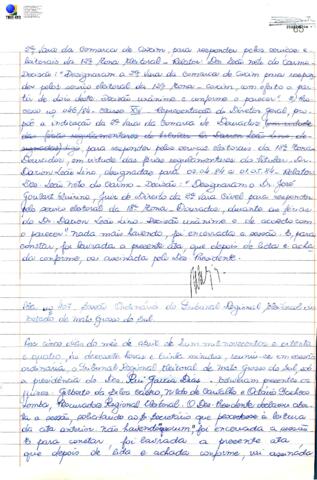 2ª Vara da Comarca de Coxim, para responder pelos serviços e-
leitorais da 12ª Zona Eleitoral - Relator: Des. João Neto do Carmo -
Decisão: "Designaram a 2ª Vara da Comarca de Coxim para respon-
der pelos serviços eleitorais da 12ª Zona - Coxim, com efeito a par-
tir de dois deste. Decisão unânime e conforme o parecer".
Classe XV - Representação do Diretor Geral, pro-
pondo a indicação da 2ª Vara da Comarca de Dourados
das férias regulamentares do titular Dr. Darion Leão Lino
para responder pelos serviços eleitorais da 18ª Zona -
Dourados, em virtude das férias regulamentares do titular - Dr.
Darion Leão Lino, designadas para 02.04.84 a 01.05.84 - Relator:
Des. João Neto do Carmo - Decisão: "Designaram o Dr. José
Goubert Juiz de Direito da 2ª Vara Cível para responder
pelo serviço eleitoral da 18ª Zona - Dourados, durante as férias
do Dr. Darion Leão Lino. Decisão unânime e de acordo com
o parecer". Nada mais havendo, foi encerrada a sessão. E, para
constar, foi lavrada a presente ata, que depois de lida e acha-
da conforme, vai assinada pelo Des. Presidente.
Ata nº 407. Sessão Ordinária do Tribunal Regional Eleitoral do
Estado de Mato Grosso do Sul.
Aos cinco dias do mês de abril de hum mil novecentos e oitenta
e quatro, às dezessete horas e trinta minutos, reuniu-se em sessão
ordinária o Tribunal Regional Eleitoral de Mato Grosso do Sul, sob
a presidência do Des. Rui Garcia Dias. Estavam presentes os
Juízes: Gilberto da Silva Castro, de Carvalho e Octávio Pacheco
Lomba, Procurador Regional Eleitoral. O Des. Presidente declarou aber-
ta a sessão, solicitando ao Sr. Secretário que procedesse à leitura
da ata anterior. Não havendo quorum, foi encerrada a sessão.
E para constar, foi lavrada a presente ata
que depois de lida e achada conforme, vai assinada